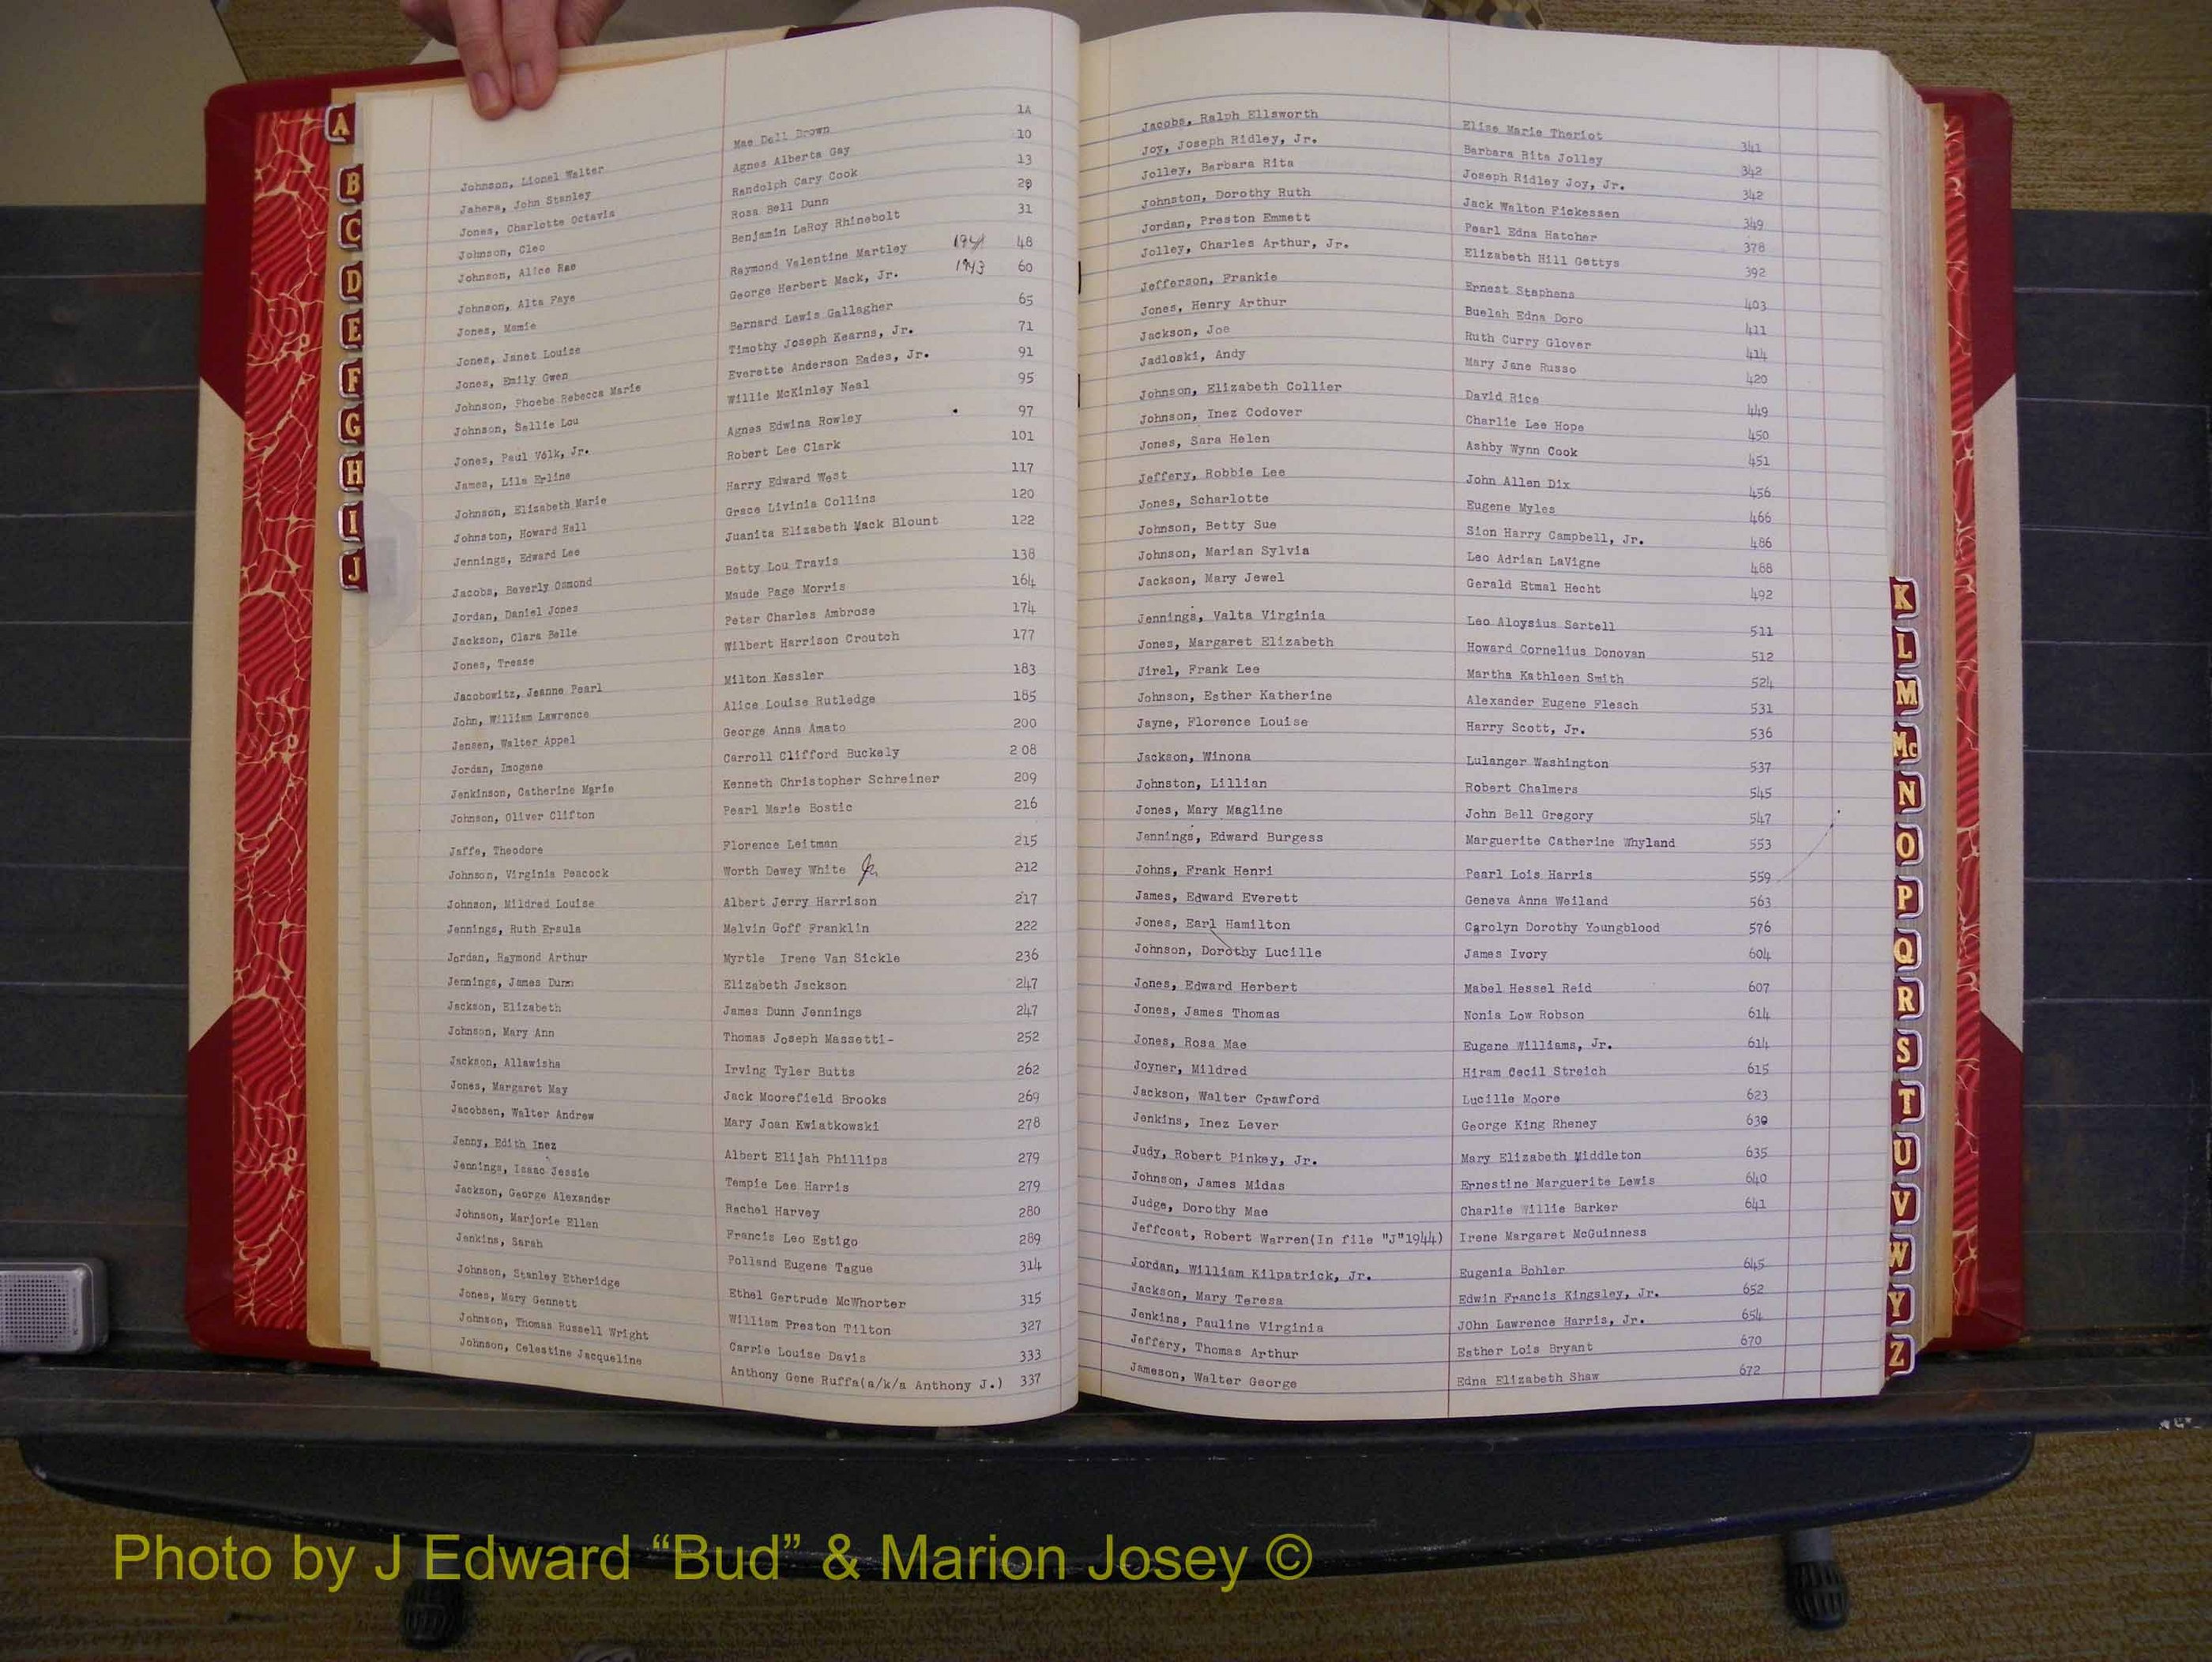 A
B
C
D
E
F
G
H
I
J
Johnson, Lionel Walter Mae Dell Brown 1A
Jahera, John Stanley Agnes Alberta Gay 10
Jones, Charlotte Octavia Randolph Cary Cook 13
Johnson, Cleo Rosa Bell Dunn
Johnson, Alice Rae Benjamin LaRoy Rhinebolt 31
Johnson, Alta Faye Raymond Valentine Martley 48
Jones, Mamie George Herbert Mack, Jr. 1943 60
Jones, Janet Louise Bernard Lewis Gallagher 65
Jones, Emily Gwen Timothy Joseph Kearns, Jr. 71
Johnson, Phoebe Rebecca Marie Everette Anderson Eades, Jr. 91
Johnson, Sallie Lou Willie McKinley Neal 95
Jones, Paul Volk, Jr. Agnes Edwina Rowley 97
James, Lila Erline Robert Lee Clark 101
Johnson, Elizabeth Marie Harry Edward West 117
Johnston, Howard Hall Grace Livinia Collins 120
Jennings, Edward Lee Juanita Elizabeth Mack Blount 122
Jacobs, Beverly Osmond Betty Lou Travis 138
Jordan, Daniel Jones Maude Page Morris 164
Jackson, Clara Belle Peter Charles Ambrose 174
Jones, Tresse Wilbert Harrison Croutch 177
Jacobowitz, Jeanne Pearl Milton Kessler 183
John, William Lawrence Alice Louise Rutledge 185
Jensen, Walter Appel George Anna Amato 200
Jordan, Imogene Carroll Clifford Buckely 2 08
Jenkinson, Catherine Marie Kenneth Christopher Schreiner 209
Johnson, Oliver Clifton Pearl Marie Bostic 216
Jaffe, Theodore Florence Leitman 215
Johnson, Virginia Peacock Worth Dewey White Jr. 212
Johnson, Mildred Louise Albert Jerry Harrison 217
Jennings, Ruth Ersula Melvin Goff Franklin 222
Jordan, Raymond Arthur Myrtle Irene Van Sickle 236
Jennings, James Dunn Elizabeth Jackson 247
Jackson, Elizabeth James Dunn Jennings 247
Johnson, Mary Ann Thomas Joseph Massetti- 252
Jackson, Allawisha Irving Tyler Butts 262
Jones, Margaret May Jack Moorefield Brooks 269
Jacobsen, Walter Andrew Mary Joan Kwiatkowski 278
Jenny, Edith Inez Albert Elijah Phillips 279
Jennings, Isaac Jessie Tempie Lee Harris 279
Jackson, George Alexander Rachel Harvey 280
Johnson, Marjorie Ellen Francis Leo Estigo 289
Jenkins, Sarah Polland Eugene Tague 314
Johnson, Stanley Etheridge Ethel Gertrude McWhorter 315
Jones, Mary Gennett William Preston Tilton 327
Johnson, Thomas Russell Wright Carrie Louise Davis 333
Johnson, Celestine Jacqueline Anthony Gene Ruffa(a/k/a Anthony J.) 337
Jacobs, Ralph Ellsworth Elise Marie Theriot 341
Joy, Joseph Ridley, Jr. Barbara Rita Jolley 342
Jolley, Barbara Rita Joseph Ridley Joy, Jr. 342
Johnston, Dorothy Ruth Jack Walton Fickessen 349
Jordan, Preston Emmett Pearl Edna Hatcher 378
Jolley, Charles Arthur, Jr. Elizabeth Hill Gettys 392
Jefferson, Frankie Ernest Stephens 403
Jones, Henry Arthur Buelah Edna Doro 411
Jackson, Joe Ruth Curry Glover 414
Jadloski, Andy Mary Jane Russo 420
Johnson, Elizabeth Collier David Rice 449
Johnson, Inez Codover Charlie Lee Hope 450
Jones, Sara Helen Ashby Wynn Cook 451
Jeffery, Robbie Lee John Allen Dix 456
Jones, Scharlotte Eugene Myles 466
Johnson, Betty Sue Sion Harry Campbell, Jr. 486
Johnson, Marian Sylvia Leo Adrian LaVigne 488
Jackson, Mary Jewel Gerald Etmal Hecht 492
Jennings, Valta Virginia Leo Aloysius Sartell 511
Jones, Margaret Elizabeth Howard Cornelius Donovan 512
Jirel, Frank Lee Martha Kathleen Smith 524
Johnson, Esther Katherine Alexander Eugene Flesch 531
Jayne, Florence Louise Harry Scott, Jr. 536
Jackson, Winona Lulanger Washington 537
Johnston, Lillian Robert Chalmers 545
Jones, Mary Magline John Bell Gregory 547
Jennings, Edward Burgess Marguerite Catherine Whyland 553
Johns, Frank Henri Pearl Lois Harris 559
James, Edward Everett Geneva Anna Weiland 563
Jones, Earl Hamilton Carolyn Dorothy Youngblood 576
Johnson, Dorothy Lucille James Ivory 604
Jones, Edward Herbert Mabel Hessel Reid 607
Jones, James Thomas Nonia Low Robson 614
Jones, Rosa Mae Eugene Williams, Jr. 614
Joyner, Mildred Hiram Cecil Streich 615
Jackson, Walter Crawford Lucille Moore 623
Jenkins, Inez Lever George King Rheney 630
Judy, Robert Pinkey, Jr. Mary Elizabeth Middleton 635
Johnson, James Midas Ernestine Marguerite Lewis 640
Judge, Dorothy Mae Charlie Willie Barker 641
Jeffcoat, Robert Warren(In file "J"1944) Irene Margaret McGuinness
Jordan, William Kilpatrick, Jr. Eugenia Bohler 645
Jackson, Mary Teresa Edwin Francis Kingsley, Jr. 652
Jenkins, Pauline Virginia JOhn Lawrence Harris, Jr. 654
Jeffery, Thomas Arthur Esther Lois Bryant 670
Jameson, Walter George Edna Elizabeth Shaw 672
K
L
M
Mc
N
O
P
Q
R
S
T
U
V
W
Y
Z
Photo by J Edward “Bud” & Marion Josey ©